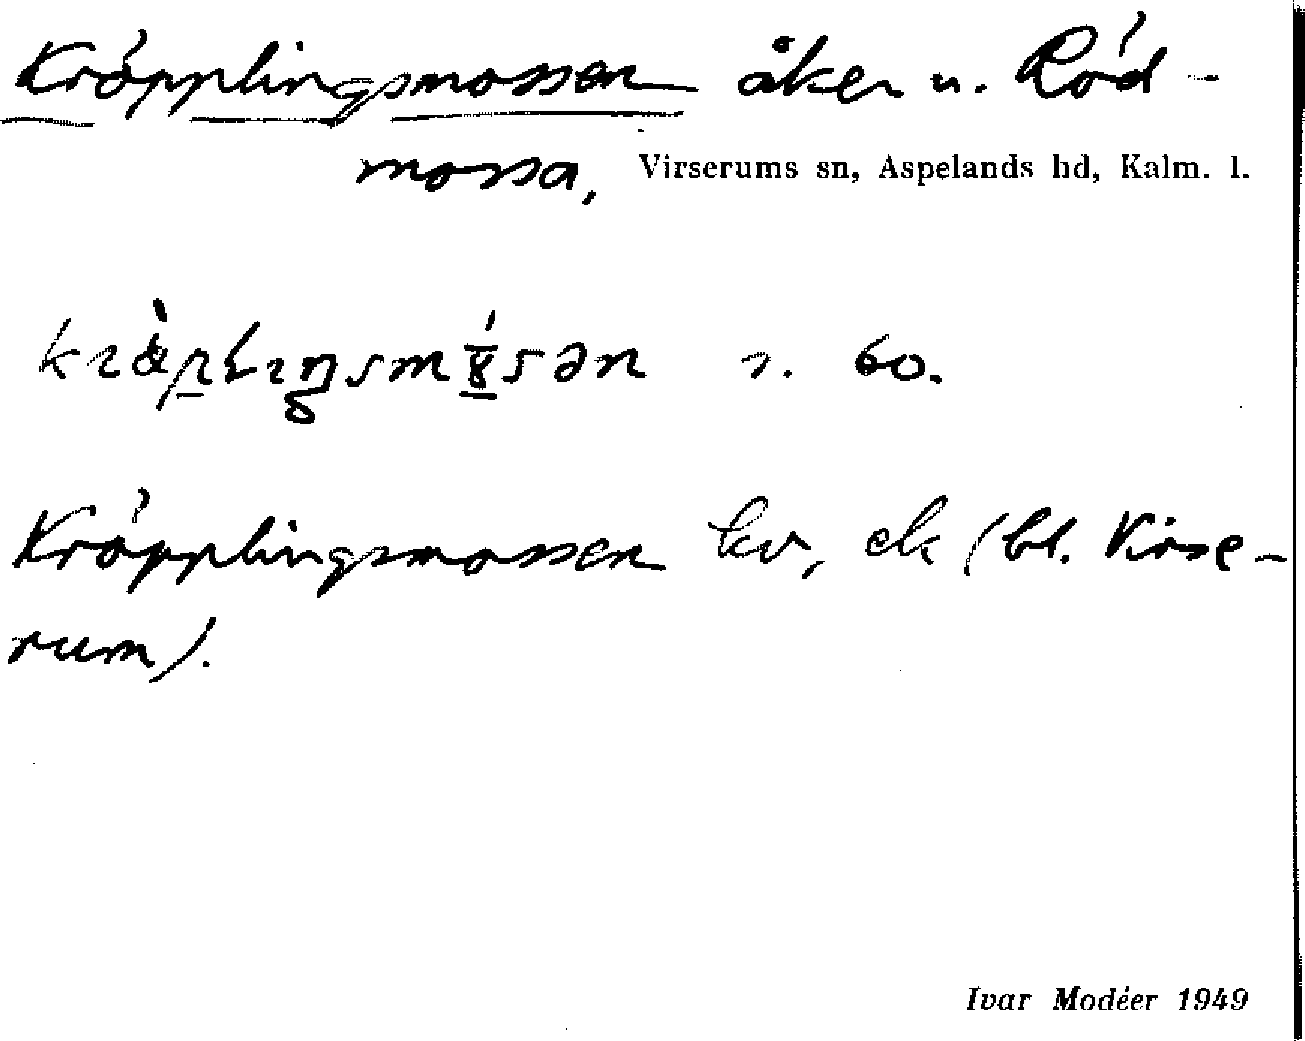 Kröpplingsmossen åker u. Röd-
mossa, Virserums sn, Aspelands hd, Kalm. l.
s. 60.
Kröpplingsmossen kv, ek (bl. Virse-
rum).
Ivar Modéer 1949